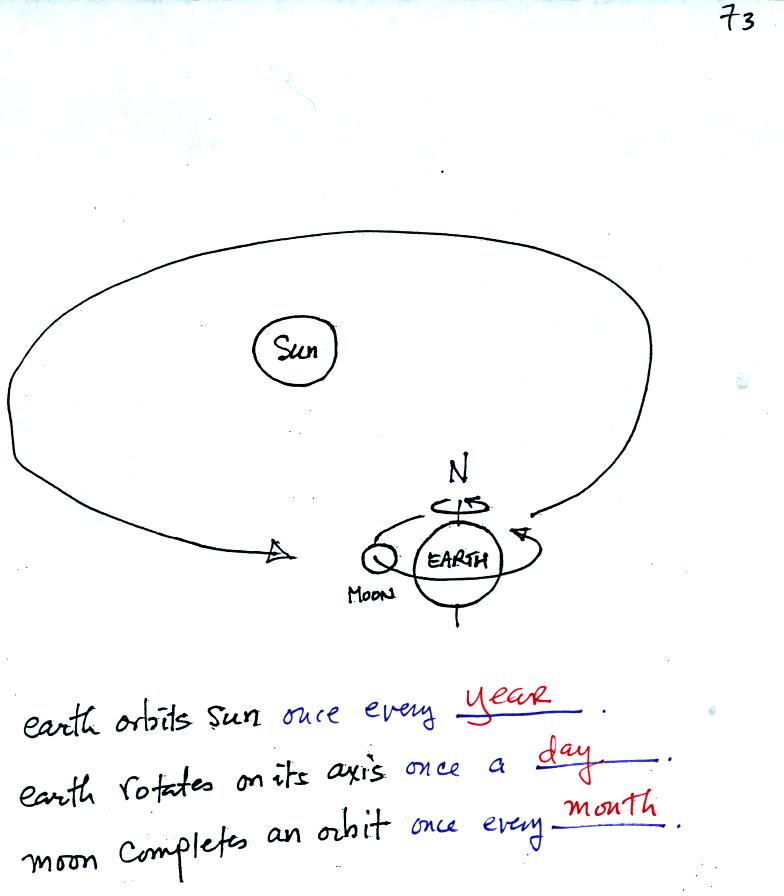 73
Sun
N
EARTH
MOON
earth orbits Sun once every year.
earth rotates on its axis once a day.
moon completes an orbit once every month.